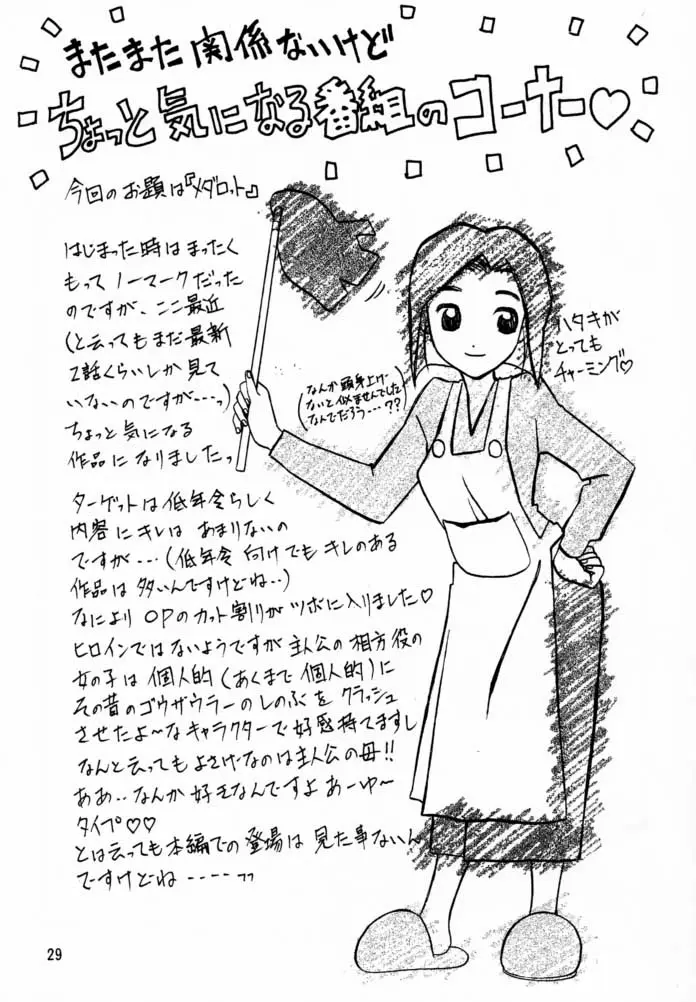 またまた関係ないけど
ちょっと気になる番組のコーナー♡
今回のお題は『メダロット』
はじまった時はまったく
もってノーマークだった
のですが、ここ最近
(と云ってもまだ最新
2話くらいしか見て
いないのですが---っ)
ちょっと気になる
作品になりましたっ
(なんか頭身上げ-
ないと似ませんでした
なんでだろう---??)
ハタキが
とっても
チャーミング♡
ターゲットは低年令らしく
内容にキレはあまりないの
ですが---(低年令向けでもキレのある
作品は多いんですけどね--)
なによりOPのカット割りがツボに入りました♡
ヒロインではないようですが主人公の相方役の
女の子は個人的(あくまで個人的)に
その昔のゴウザウラーのしのぶをクラッシュ
させたよ〜なキャラクターで好感持てますし
なんと云ってもよさげなのは主人公の母!!
ああ‥なんか好きなんですよあーゆ〜
タイプ♡♡
とは云っても本編での登場は見た事ないん
ですけどね----ッッ
29